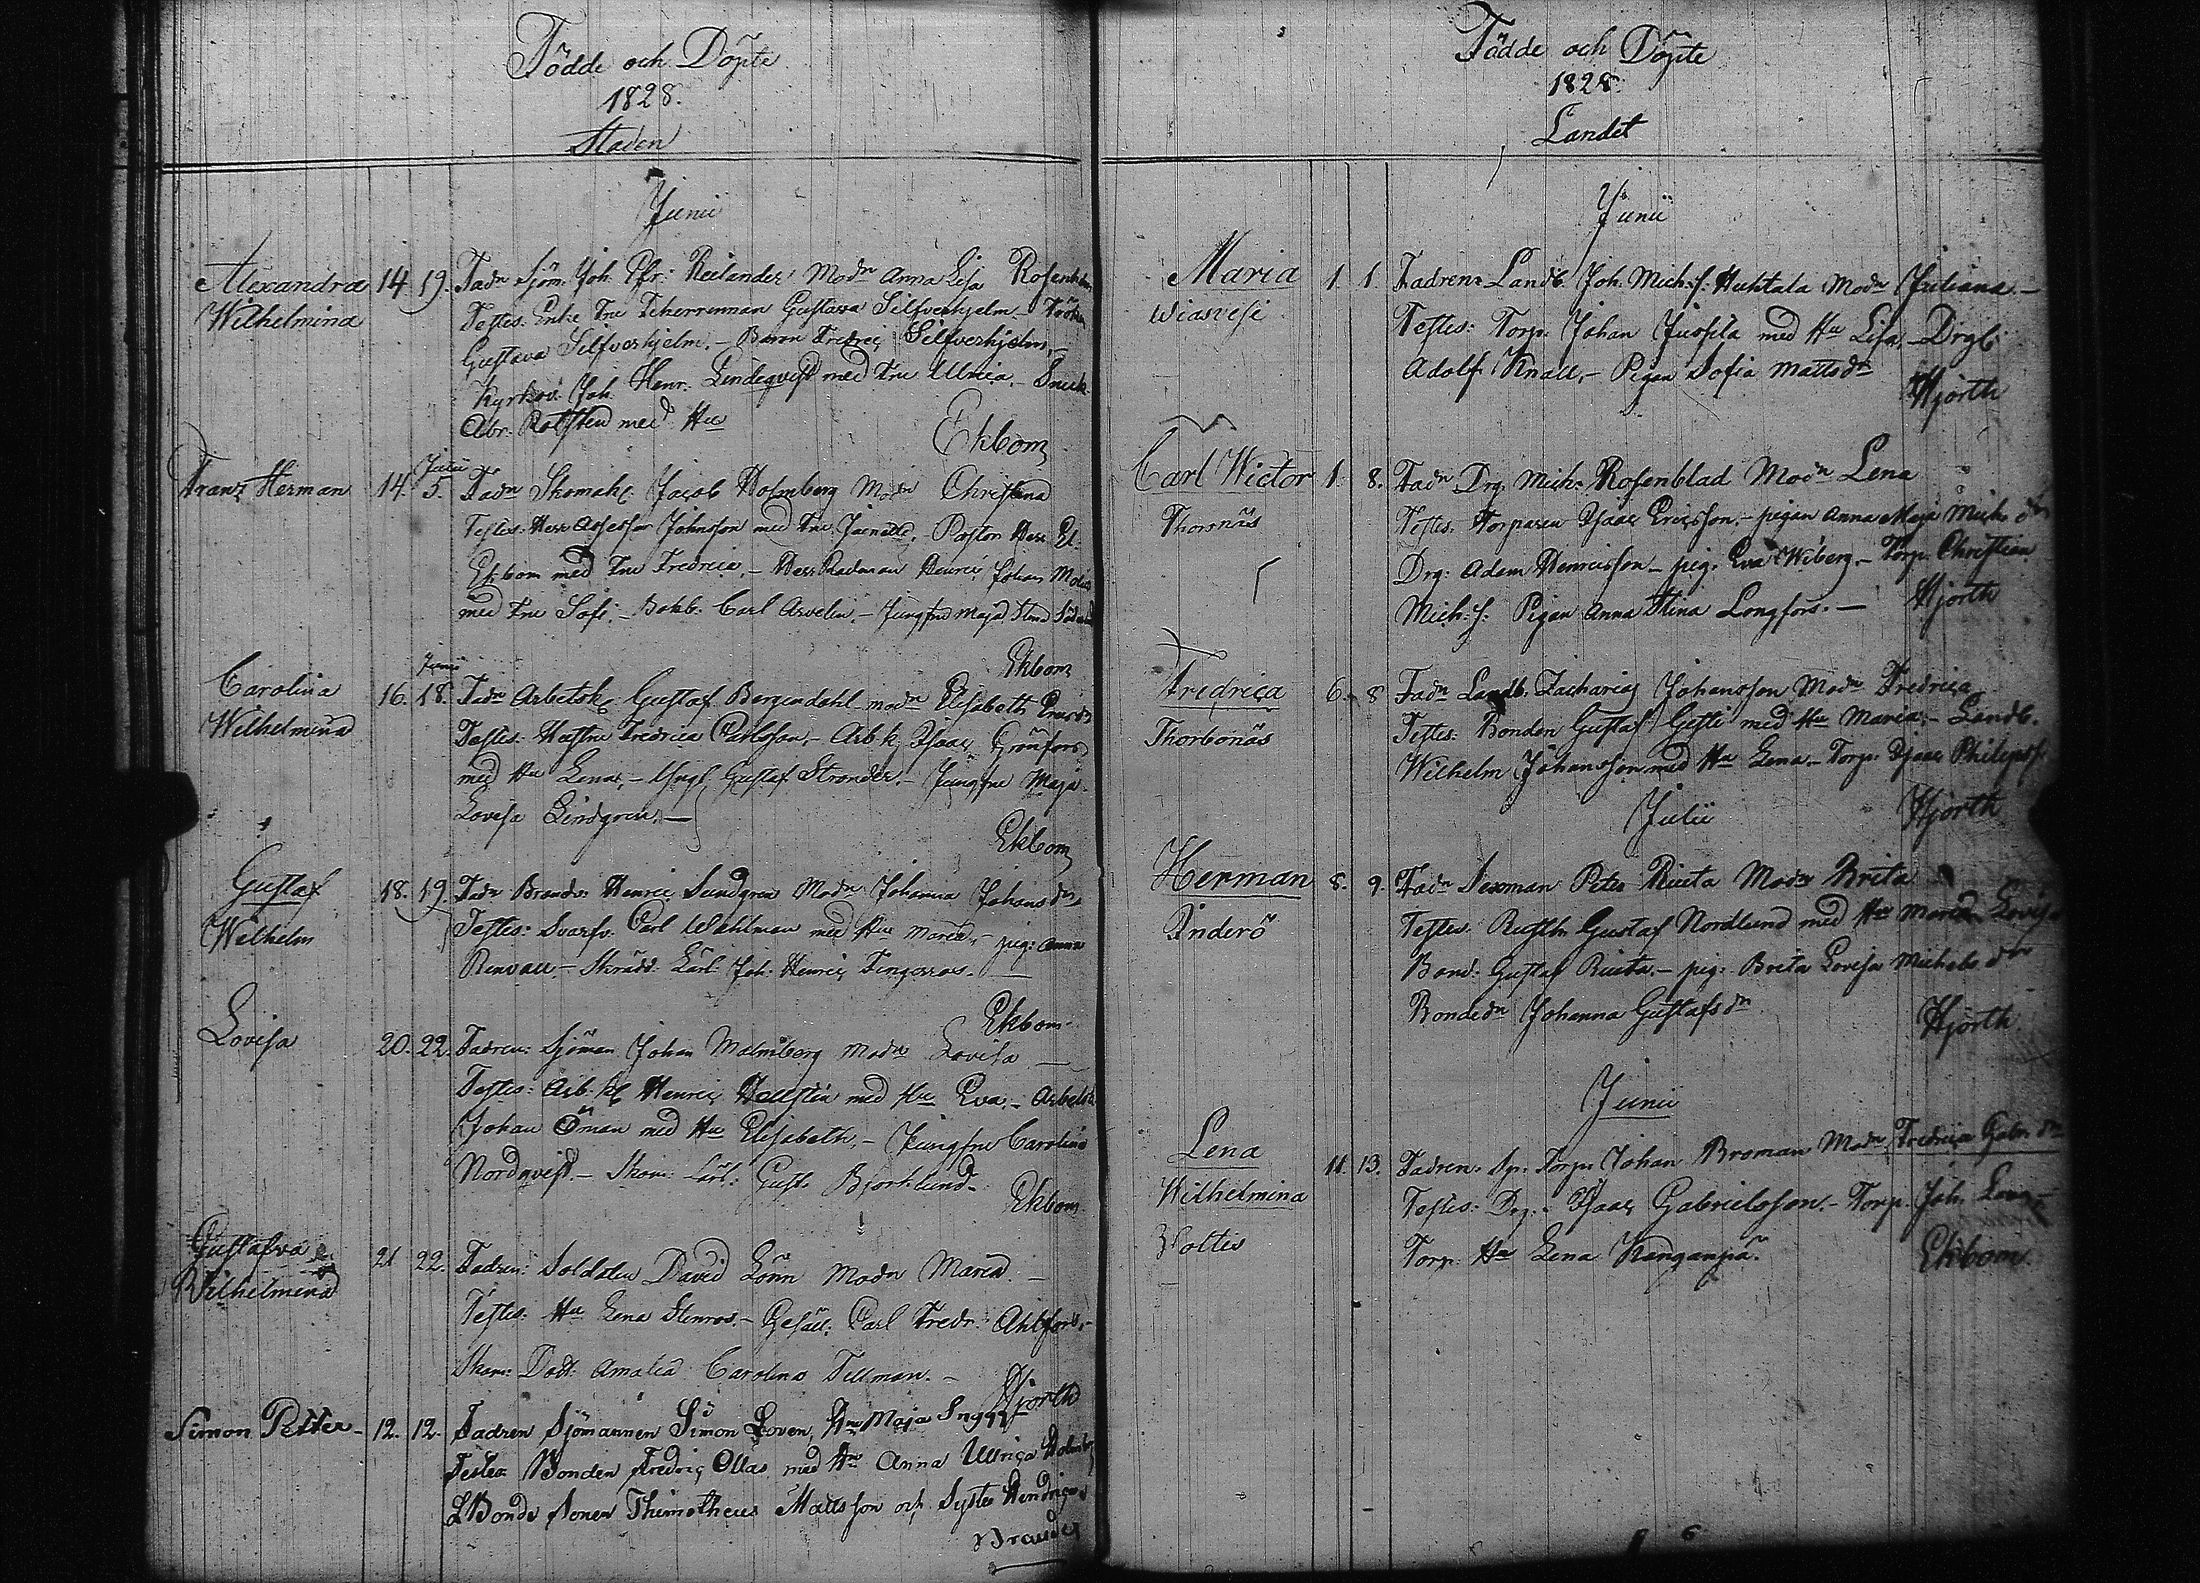 Födde och Döpte
1828.
Staden
Junii
Alexandra 14 19. Fadn Sjöm. Joh. Chr: Reilander Modn Anna Lisa
Wilhelmina Testes. Enke Fru Gustava Silfverhjelm
Gustava Silfverhjelm. – Baron Fredric Silfverhjelm
Joh. Henr. Lindeqvist med Fru Ulrica. – Snick.
Abr. med Hu
Ekbom
Julii
Franz Herman 14. 5. Fadn Skomak. Jacob Holmberg Modn Christina
Testes. Herr Assessor Johnsson med Fru – Pastor Herr
Ekbom med Fru Fredrica. – Herr Radman Henric Johan
med Fru Sofi. – Bokb. Carl Arvelin. – Jungfru Maja Stina
Ekbom
Junii
Carolina 16. 18. Fadn Arbetsk. Gustaf Bergendahl modn Elisabeth
Wilhelmina Testes: Hustru Fredrica Carlsson. – Arb.k. Isaac Grönfors
med Hu Lena, – Gustaf Strander. – Jungfru Maja
Lovisa Lindgren. –
Ekbom
Gustaf 18. 19. Fadn Henric Sundgren Modn Johanna Johans dr
Wilhelm Testes: Svarfv. Carl Wahlman med Hu Maria, – pig: Anna
Renvall. – Skrädd. Lärl. Joh. Henric Tingerroos. –
Ekbom.
Lovisa 20. 22. Fadren: Sjöman Johan Malmberg Modn Lovisa –
Testes: Arb. k. Henric Hallstén med Hu Eva, – Arbetsk.
Johan Öman med Hu Elisabeth. – Jungfru Carolina
Nordqvist. – Skom. Lärl: Gust. Björklund.
Ekbom
Gustafva 21 22. Fadren: Soldaten David Lönn Modn Maria. –
Wilhelmina Testes: Hu Lena Stenroos. – Gesäll: Carl Fredr. Ahlfors, –
Skom: Dott. Amalia Carolina Tillman. –
Hjorth
Simon Petter – 12. 12. Fadren Sjömannen Simon Loven, Hu Maja
Testes Bonden Fredric Ollas med Hu Anna Ullrica
Bonde Sonen Thimotheus Mattsson och Syster Hendrica
Födde och Döpte
1828.
Landet
Junii
Maria 1. 1. Fadren Landb. Joh. Mich.s. Huhtala Modn Juliana. –
Wiasvesi Testes: Torp. Johan Juosila med Hu Lisa. – Drgl:
Adolf Knall, – Pigan Sofia Mattsdr
Hjorth
Carl Wictor 1. 8. Fadn Drg. Mich. Rosenblad Modn Lena
Thornäs Testes. Torparen Isaac Ericsson. – pigan Anna Maja Mich. dr
Drg: Adam Henricsson – pig. Eva Wiberg. – Torp. Christian
Mich: s. Pigan Anna Stina Longfors. – Hjorth
Fredrica 6. 8 Fadn Landb. Zacharias Johansson Modn Fredrica
Thorbonäs Testes. Bonden Gustaf Getti med Hu Maria. – Landb.
Wilhelm Johansson med Hu Lena. – Torp. Isaac Philips s.
Julii Hjorth
Herman 8. 9. Fadn Sexman Peter Ruita Modn Brita
Inderö Testes. Rusth. Gustaf Nordlund med Hu Maria Lovisa
Bond: Gustaf Ruita. – pig. Brita Lovisa Michels dr
Bondedr Johanna Gustafs dr
Hjorth
Junii
Lena 11. 13. Fadren. Sp. Torp. Johan Broman Modn Fredrica Gabr. dr
Wilhelmina Testes: Drg. Isaac Gabrielsson. – Torp. Joh.
Torp. Hu Lena Kanganpä.
Ekbom.